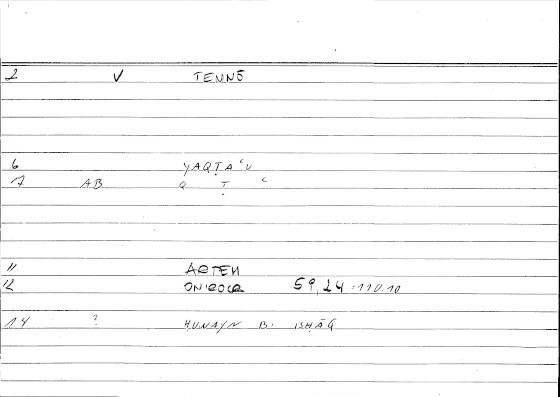 2 V TEMNŌ
6 YAQṬAʿU
7 AB Q Ṭ ʿ
11 ARTEM
12 ONIROCR 59,24 : 110.10
14 ? ḤUNAYN B. ISḤĀQ